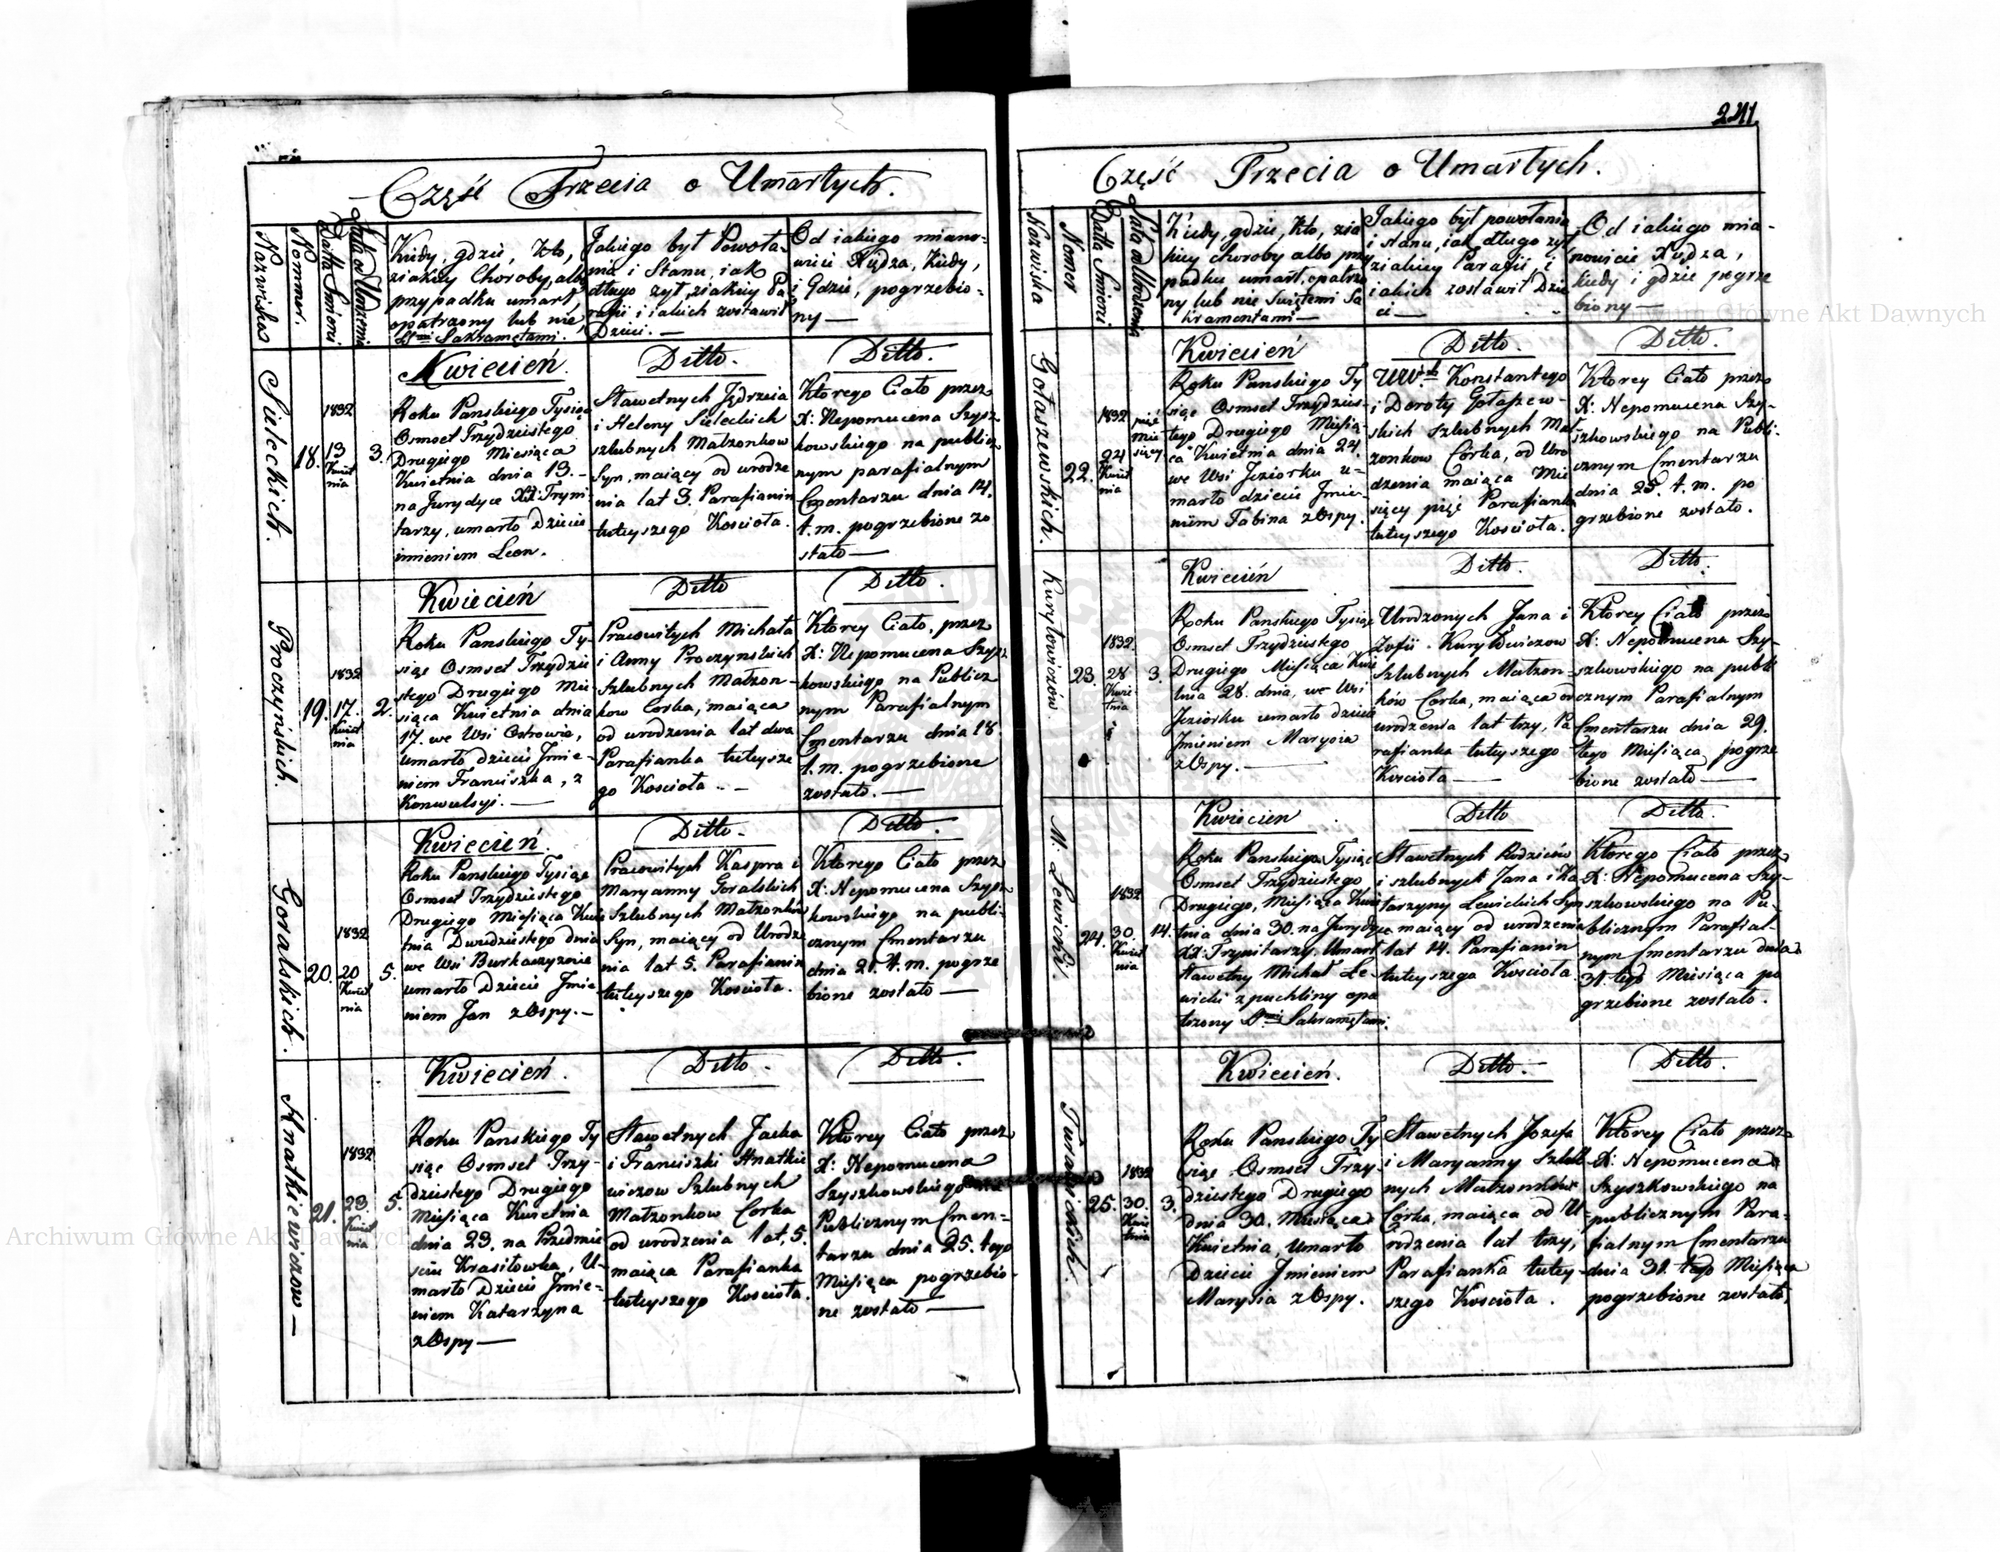 Część Trzecia o Umarłych.
Nazwisko
Nommer.
Datta Smierci
Lata od Urodzenia
Kiedy, gdzie, kto,
ziakiey Choroby, albo
przypadku umarł,
opatrzony lub nie,
S[mi] Sakramętami.
Jakiego był Powoła-
nia i Stanu, iak
długo żył, ziakiey Pa
rafii i iakich zostawił
Dzieci. —
Od iakiego miano-
wicie Xiędza, Kiedy,
i Gdzie, pogrzebio-
ny —
Sieleckich.
18.
1832
13
Kwiet
nia
3.
Kwiecień.
Roku Panskiego Tysiąc
Osmset Trzydziestego
Drugiego Miesiąca
Kwietnia dnia 13. -
na Jurydyce XX: Tryni
tarzy, umarło Dziecie
imieniem Leon.
Ditto.
Sławetnych Jędrzeia
i Heleny Sieleckich
szlubnych Małżonkow
Syn, maiący od urodze
nia lat 3. Parafianin
tuteyszego Kościoła.
Ditto.
Ktorego Ciało przez
X: Nepomucena Szysz
kowskiego na publicz
nym parafialnym
Cmentarzu dnia 14.
t. m. pogrzebione zo
stało —
Proczyńskich.
19.
1832
17.
Kwiet
nia
2.
Kwiecień
Roku Panskiego Ty-
siąc Osmset Trzydzie
stego Drugiego Mie
siąca Kwietnia dnia
17. we Wsi Ostrowie,
umarło dziecie Jmie-
niem Franciszka, z
Konwulsyi. —
Ditto
Pracowitych Michała
i Anny Proczynskich
Szlubnych Małzon-
kow Corka, maiąca
od urodzenia lat dwa
Parafianka tuteysze
go Kościoła - -
Ditto.
Ktorey Ciało, przez
X: Nepomucena Szysz
kowskiego na Publicz
nym Parafialnym
Cmentarzu dnia 18.
t. m. pogrzebione
zostało. —
Goralskich.
20.
1832
20
Kwiet
nia
5.
Kwiecień.
Roku Panskiego Tysiąc
Osmset Trzydziestego
Drugiego Miesiąca Kwie
tnia Dwudziestego dnia
we Wsi Burkaczyznie
umarło Dziecie Jmie
niem Jan z Ospy. —
Ditto.
Pracowitych Kaspra i
Maryanny Goralskich
Szlubnych Małżonków
Syn, maiący od Urodze
nia lat 5. Parafianin
tuteyszego Kościoła.
Ditto.
Ktorego Ciało przez
X: Nepomucena Szysz
kowskiego na publi-
cznym Cmentarzu
dnia 21. t. m. pogrze
bione zostało —
Hnatkiewiczow —
21.
1832
23.
Kwiet
nia
5.
Kwiecień.
Roku Panskiego Ty
siąc Osmset Trzy-
dziestego Drugiego
Miesiąca Kwietnia
dnia 23. na Przedmie
sciu Krasitowka, U-
marło Dziecie Jmie-
niem Katarzyna
z Ospy —
Ditto.
Sławetnych Jacka
i Franciszki Hnatkie
wiczow Szlubnych
Małzonkow Corka
od urodzenia lat, 5.
maiąca Parafianka
tuteyszego Kościoła.
Ditto.
Ktorey Ciało przez
X: Nepomucena
Szyszkowskiego na
Publicznym Cmen-
tarzu dnia 25. tego
Miesiąca pogrzebio-
ne zostało —
241.
Część Trzecia o Umarłych.
Nazwiska
Nomer
Datta Smierci
Lata od Urodzenia
Kiedy, gdzie, kto, zia
kiey choroby albo przy
padku umarł, opatrzo
ny lub nie Swiętemi Sa
kramentami —
Jakiego był powołania
i stanu, iak długo żył
ziakiey Parafii i
iakich zostawił Dzie
ci —
Od iakiego mia-
nowicie Xiędza,
kiedy i gdzie pogrze
biony —
Gołaszewskich.
22.
1832
24
Kwiet
nia
pięć
mie
sięcy
Kwiecień
Roku Panskiego Ty
siąc Osmset Trzydzies-
tego Drugiego Miesią-
ca Kwietnia dnia 24.
we Wsi Jeziorku u-
marło dziecie Jmie-
niem Tabina z Ospy.
Ditto.
Konstantego
i Doroty Gołaszew-
skich Szlubnych Mał
żonkow Corka, od Uro
dzenia maiąca Mie
sięcy pięć Parafianka
tuteyszego Kościoła.
Ditto.
Ktorey Ciało przez
X: Nepomucena Szy-
szkowskiego na Publi-
cznym Cmentarzu
dnia 25. t. m. po
grzebione zostało.
Kuryłowiczow.
23.
1832.
28
Kwie
tnia
3.
Kwiecień
Roku Panskiego Tysiąc
Osmset Trzydziestego
Drugiego Miesiąca Kwie
tnia 28. dnia, we Wsi
Jeziorku umarło dziecie
Jmieniem Marysia
z Ospy. —
Ditto.
Urodzonych Jana i
Zofii Kuryłowiczow
Szlubnych Małzon-
ków Corka, maiąca od
urodzenia lat trzy, Pa
rafianka tuteyszego
Kościoła —
Ditto.
Ktorey Ciało przez
X: Nepomucena Szy-
szkowskiego na publi
cznym Parafialnym
Cmentarzu dnia 29.
tego Miesiąca, pogrze
bione zostało —
M. Lewicki.
24.
1832
30.
Kwiet
nia
14.
Kwiecien
Roku Panskiego Tysiąc
Osmset Trzydziestego
Drugiego, Miesiąca Kwie
tnia dnia 30. na Jurydyce
XX: Trynitarzy, Umarł
Sławetny Michał Le-
wicki z puchliny opa
trzony S[mi] Sakramętami.
Ditto
Sławetnych Rodziców
i szlubnych Jana i Ka
tarzyny Lewickich Syn
maiący od urodzenia
lat 14. Parafianin
tuteyszego Kościoła
Ditto.
Ktorego Ciało przez
X: Nepomucena Szy-
szkowskiego na Pu-
blicznym Parafial-
nym Cmentarzu dnia
31. tego Miesiąca po
grzebione zostało.
25.
1832
30.
Kwie
tnia
3.
Kwiecień.
Roku Panskiego Ty
siąc Osmset Trzy
dziestego Drugiego
dnia 30. Miesiąca
Kwietnia, Umarło
Dziecie Jmieniem
Marysia z Ospy.
Ditto. —
Sławetnych Jozefa
i Maryanny Szlub
nych Małzonków
Córka, maiąca od U-
rodzenia lat trzy,
Parafianka tutey-
szego Kościoła.
Ditto.
Ktorey Ciało przez
X: Nepomucena
Szyszkowskiego na
publicznym Para-
fialnym Cmentarzu
dnia 31. tego Miesiąca
pogrzebione zostało,
Archiwum Główne Akt Dawnych
Archiwum Główne Akt Dawnych